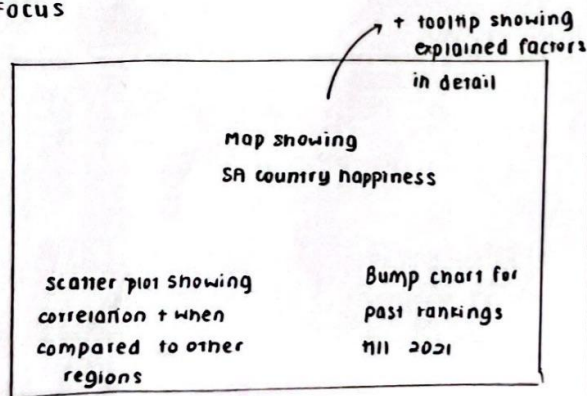 Focus
+ tooltip showing
explained factors
in detail
Map showing
SA country happiness
scatter plot showing
correlation + when
compared to other
regions
Bump chart for
past rankings
till 2021